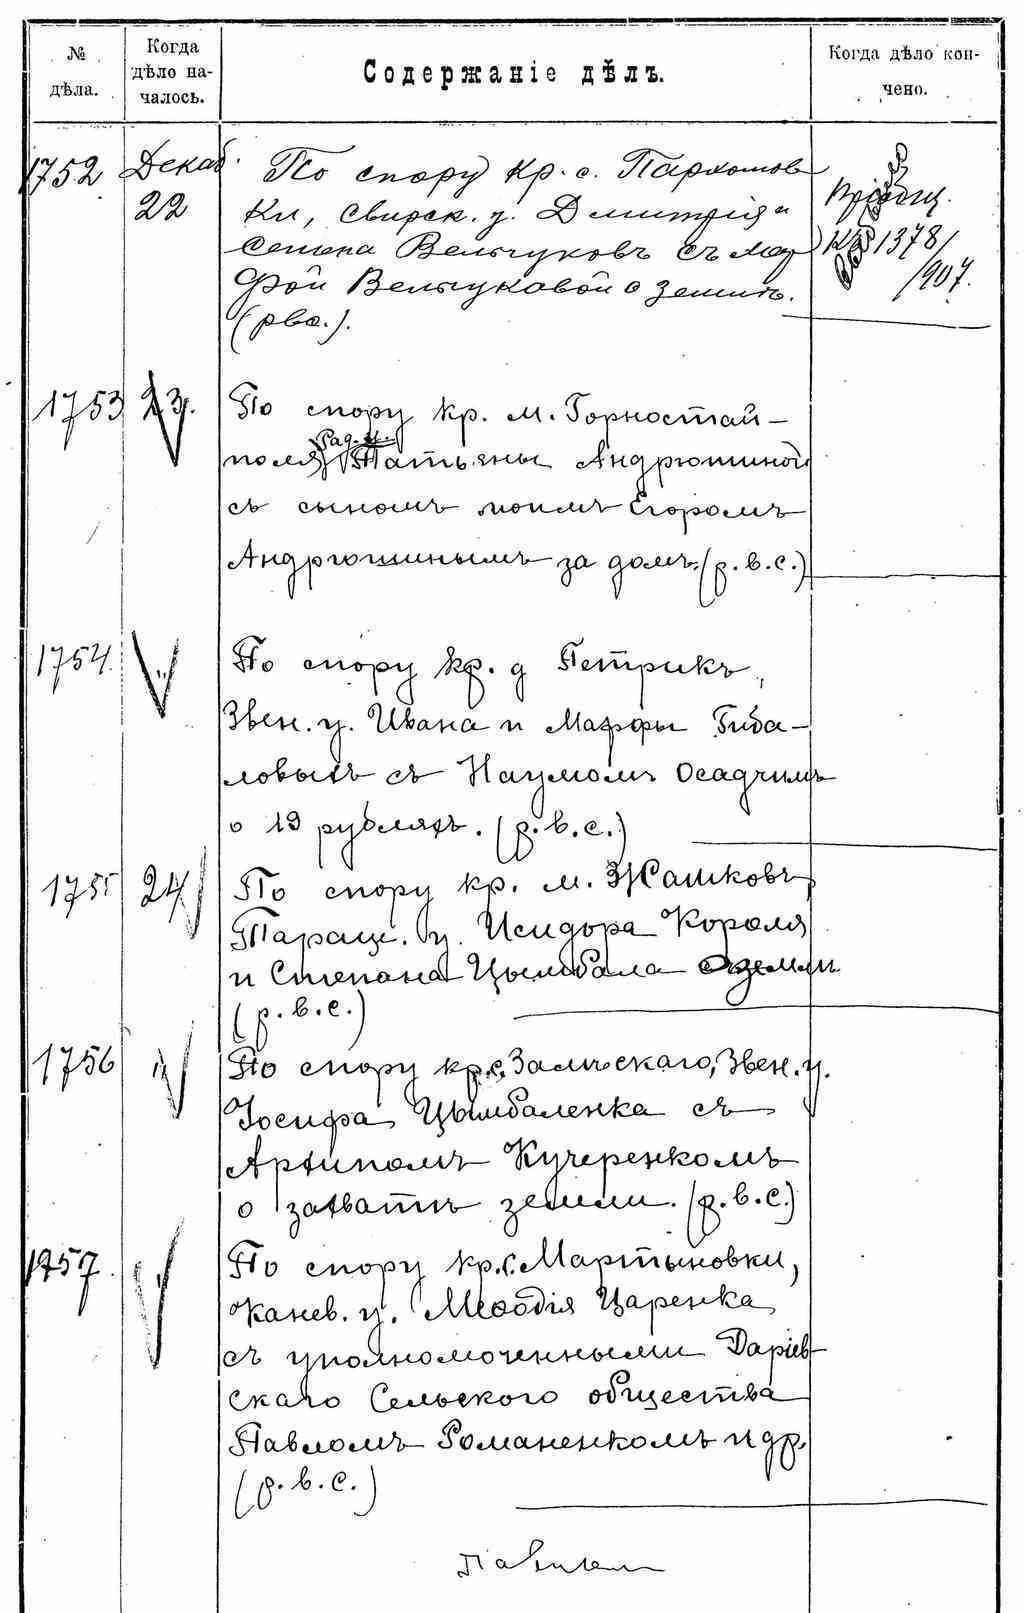 № дѣла.
Когда дѣло на-
чалось.
Содержаніе дѣлъ.
Когда дѣло кон-
чено.
1752
Декаб.
22
По спору кр. с. Пархомов
ки, Свирск. у. Дмитрія и
Семена Вельчуковъ съ Мар
фой Вельчуковой о земли.
(рвс.).
Пріобщ.
къ 1378/
/907.
1753
23.
По спору кр. м. Горностай-
поля, Рад. у. Татьяны Андрюшиной
съ сыномъ моимъ Егоромъ
Андрюшинымъ за домъ. (р.в.с.)
1754.
"
По спору кр. д Петрикъ,
Звен. у. Ивана и Марфы Гиба-
ловыхъ съ Наумомъ Осадчимъ
о 19 рубляхъ. (р.в.с.)
1755
24
По спору кр. м. Жашковъ,
Таращ. у. Исидора Короля
и Степана Цымбала о земли
(р.в.с.)
1756
"
По спору кр. с. Залѣскаго, Звен. у.
Іосифа Цымбаленка съ
Архипомъ Кучеренкомъ
о захватѣ земли. (р.в.с.)
1757.
По спору кр. с. Мартыновки,
Канев. у. Меѳодія Царенка
съ уполномоченными Даріев
скаго Сельского общества
Павломъ Романенкомъ и др.
(р.в.с.)